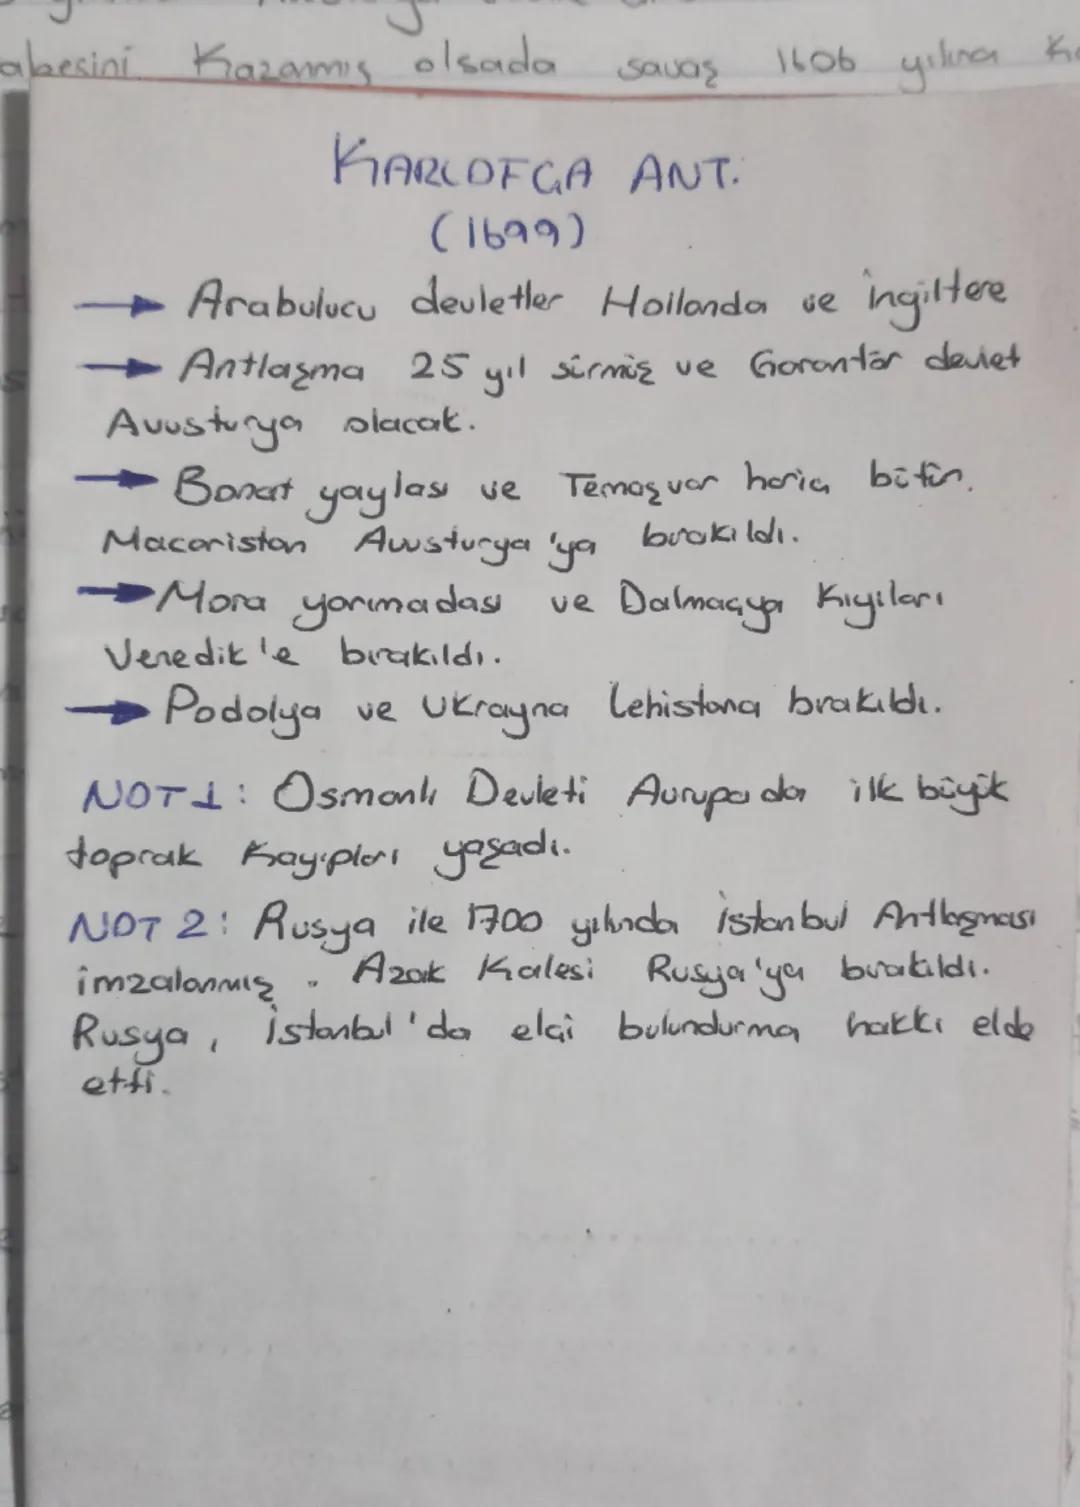 abesini Kazanmış olsada savaş 1606 yılına
KARLOFÇA ANT.
(1699)
→ Arabulucu devletler Hollanda ve İngiltere
→ Antlaşma 25 yıl sürmüş ve Garantör devlet
Avusturya olacak.
→ Banat yaylası ve Temaşvar hariç bütün
Macaristan Avusturya'ya bırakıldı.
→ Mora yarımadası ve Dalmaçya Kıyıları
Venedik'e bırakıldı.
→ Podolya ve Ukrayna Lehistana bırakıldı.
NOT1: Osmanlı Devleti Avrupada ilk büyük
toprak Kayıpları yaşadı.
NOT 2: Rusya ile 1700 yılında İstanbul Antlaşması
imzalanmış. Azak Kalesi Rusya'ya bırakıldı.
Rusya, İstanbul'da elçi bulundurma hakkı elde
etti.